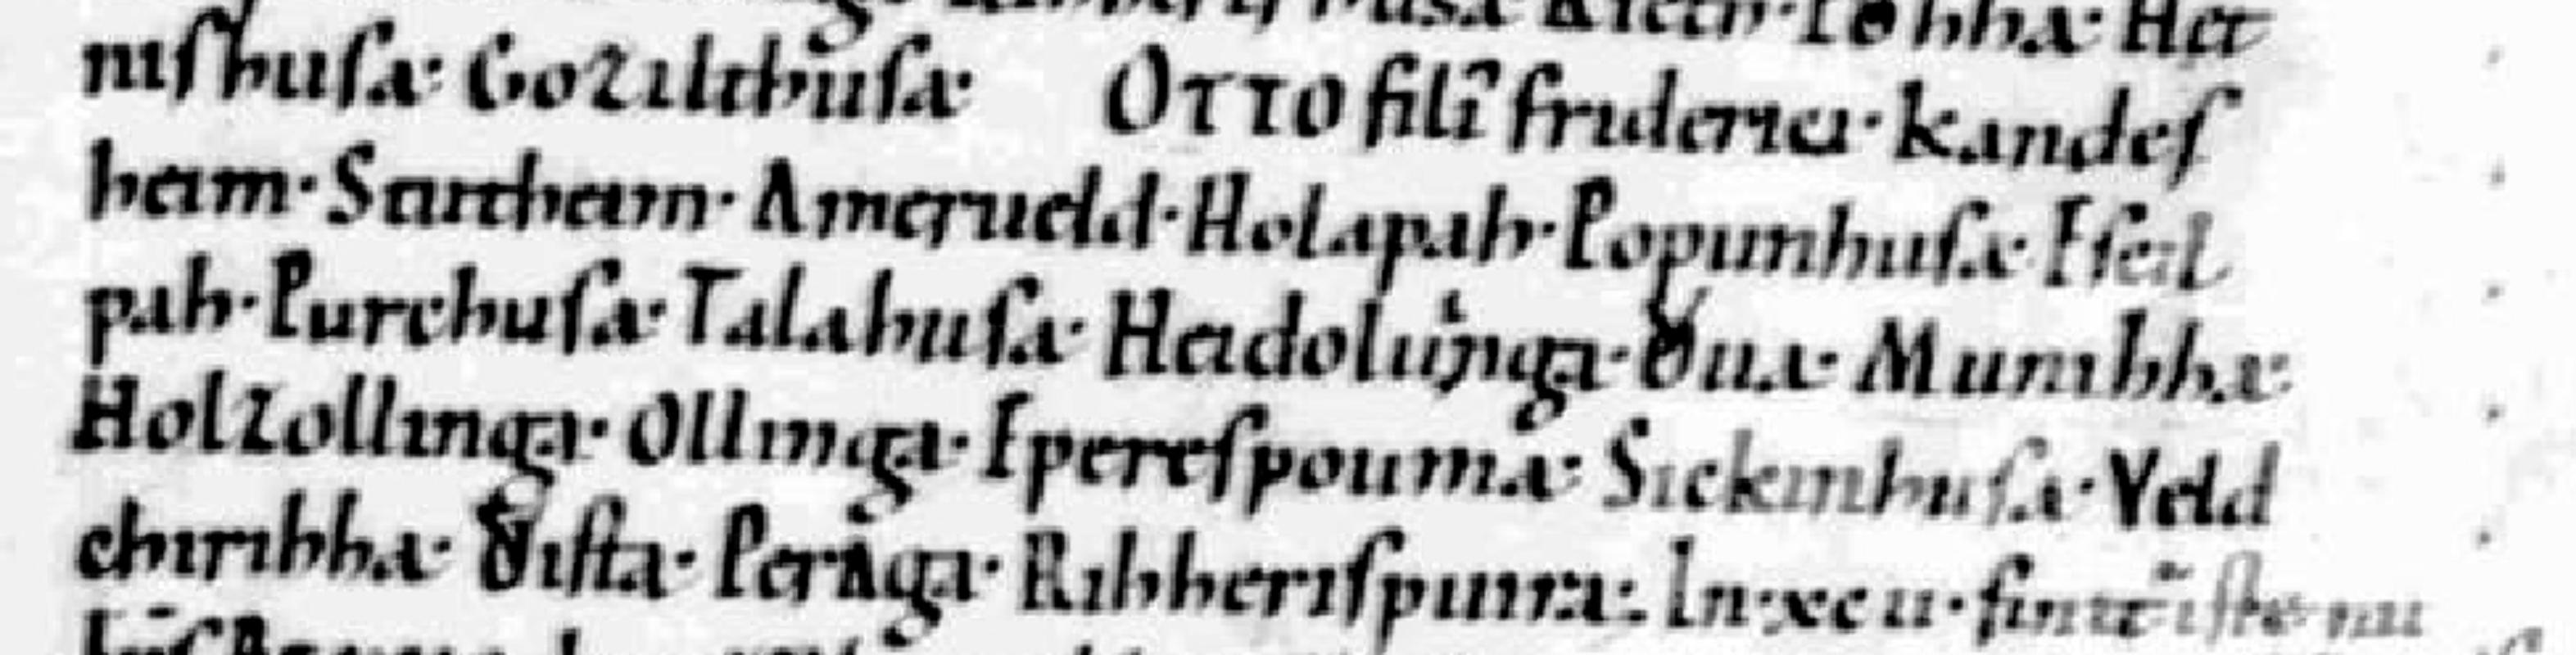 husa Tohha· Het
nisһusa· Gozilthusa· OTTO filī friderici· kandes
heim· Santheim· Amerueld· Holapah· Popunhusa· Eseil
pah· Purchusa· Talahusa· Heidoluinga· Vua· Munihha·
Holzollinga· Ollinga· Eperespouma· Sickinhusa· Veld
chirihha· Vista· Peraga· Rihherispuira· In xc u· finit iste